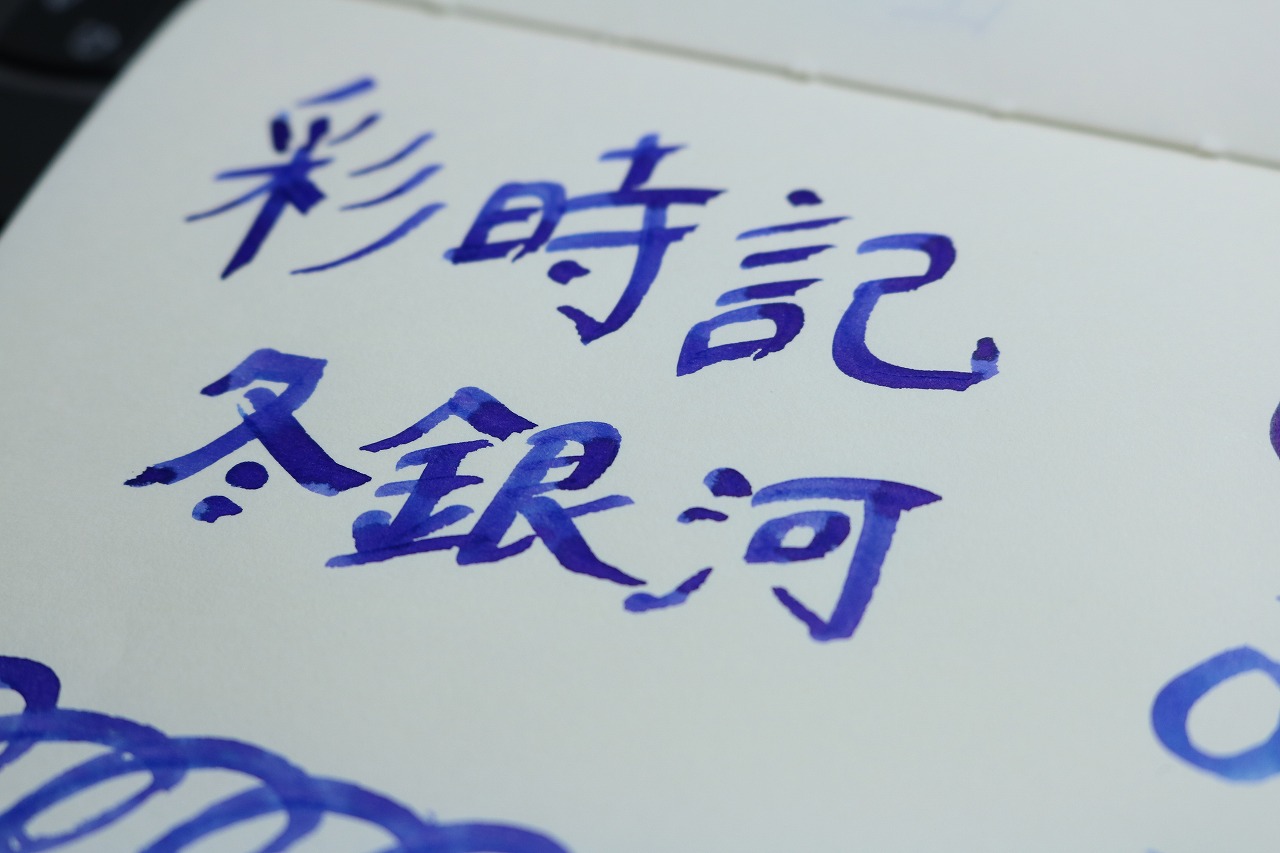 彩時記
冬銀河